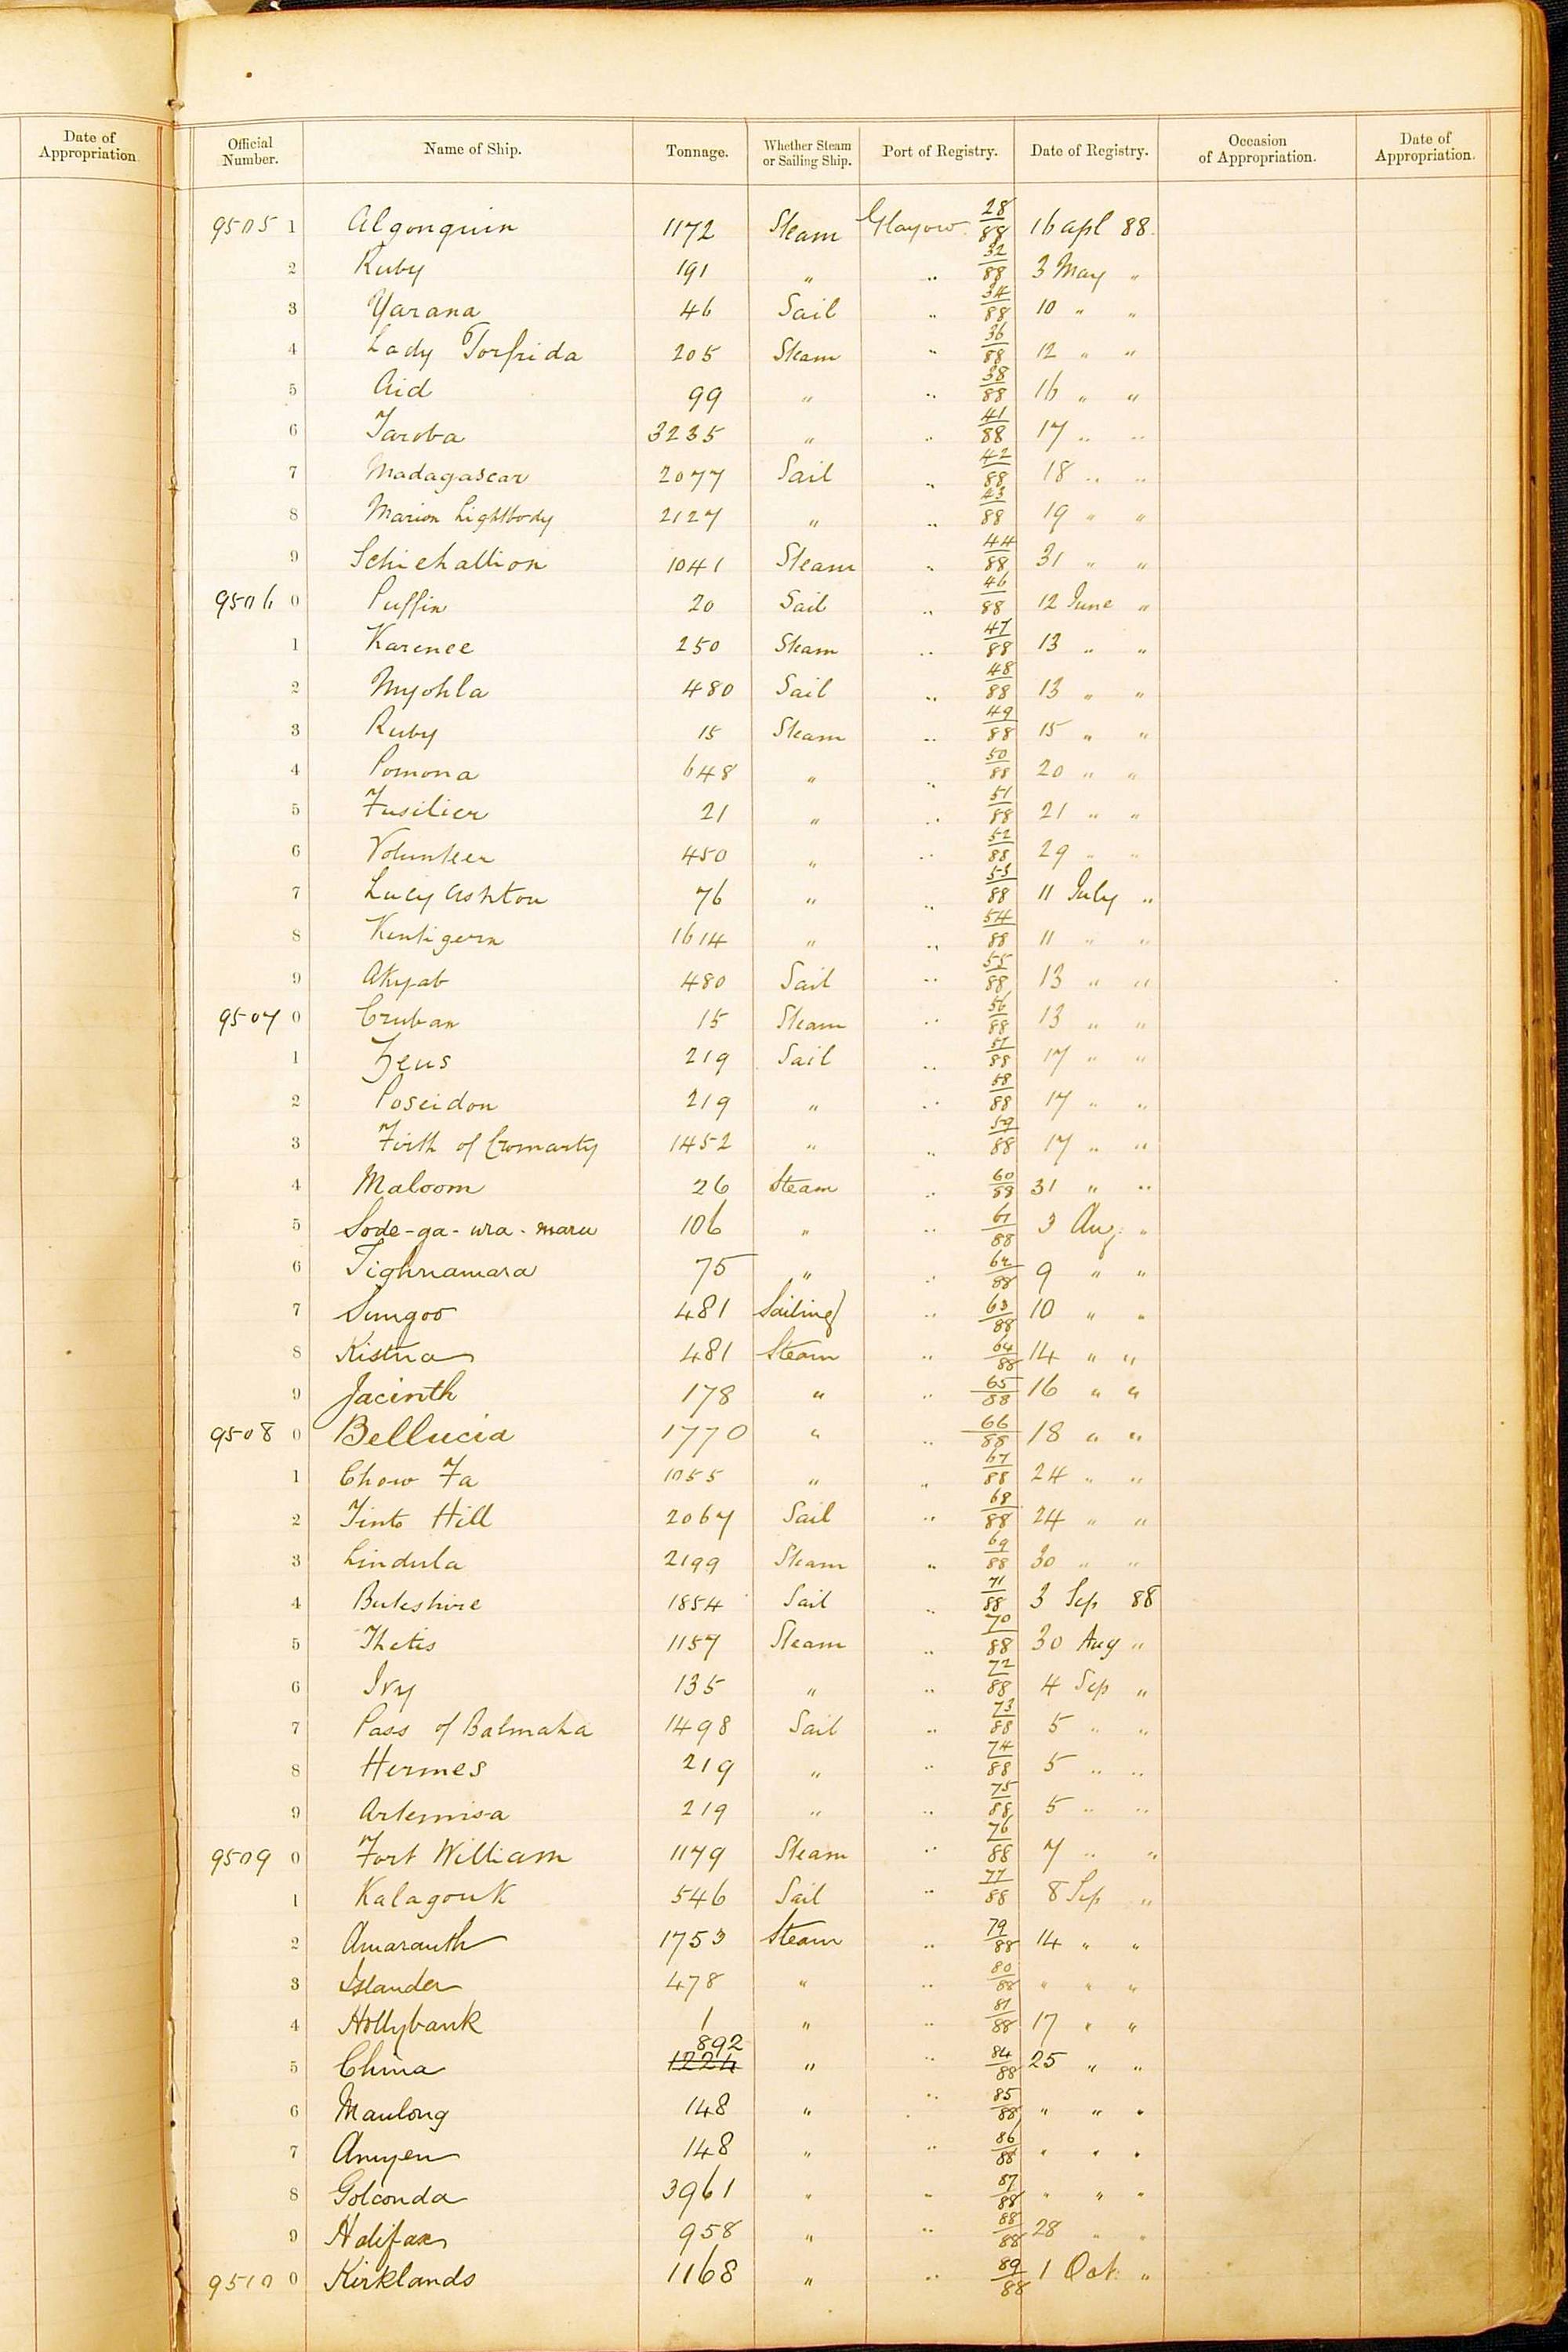 Date of Appropriation.
Official Number. Name of Ship. Tonnage. Whether Steam or Sailing Ship. Port of Registry. Date of Registry. Occasion of Appropriation. Date of Appropriation.
9505 1 Algonquin 1172 Steam Glasgow 28/88 16 apl 88.
2 Ruby 191 " " 32/88 3 May "
3 Yarana 46 Sail " 34/88 10 " "
4 Lady Torfrida 205 Steam " 36/88 12 " "
5 Aid 99 " " 38/88 16 " "
6 Taroba 3235 " " 41/88 17 " "
7 Madagascar 2077 Sail " 42/88 18 " "
8 Marion Lightbody 2127 " " 43/88 19 " "
9 Schiehallion 1041 Steam " 44/88 31 " "
9506 0 Puffin 20 Sail " 46/88 12 June "
1 Karenee 250 Steam " 47/88 13 " "
2 Myohla 480 Sail " 48/88 13 " "
3 Ruby 15 Steam " 49/88 15 " "
4 Pomona 648 " " 50/88 20 " "
5 Fusilier 21 " " 51/88 21 " "
6 Volunteer 450 " " 52/88 29 " "
7 Lucy Ashton 76 " " 53/88 11 July "
8 Kentigern 1614 " " 54/88 11 " "
9 Akyab 480 Sail " 55/88 13 " "
9507 0 Cruban 15 Steam " 56/88 13 " "
1 Zeus 219 Sail " 57/88 17 " "
2 Poseidon 219 " " 58/88 17 " "
3 Firth of Cromarty 1452 " " 59/88 17 " "
4 Maloom 26 Steam " 60/88 31 " "
5 Sode-ga-ura-maru 106 " " 61/88 3 Aug: "
6 Tighnamara 75 " " 62/88 9 " "
7 Sungoo 481 Sailing " 63/88 10 " "
8 Kistna 481 Steam " 64/88 14 " "
9 Jacinth 178 " " 65/88 16 " "
9508 0 Bellucia 1770 " " 66/88 18 " "
1 Chow Fa 1055 " " 67/88 24 " "
2 Tinto Hill 2067 Sail " 68/88 24 " "
3 Lindula 2199 Steam " 69/88 30 " "
4 Buteshire 1854 Sail " 71/88 3 Sep 88
5 Thetis 1157 Steam " 70/88 30 Aug "
6 Ivy 135 " " 72/88 4 Sep "
7 Pass of Balmaha 1498 Sail " 73/88 5 " "
8 Hermes 219 " " 74/88 5 " "
9 Artemisa 219 " " 75/88 5 " "
9509 0 Fort William 1179 Steam " 76/88 7 " "
1 Kalagouk 546 Sail " 77/88 8 Sep "
2 Amaranth 1753 Steam " 79/88 14 " "
3 Islander 478 " " 80/88 " " "
4 Hollybank 1 " " 81/88 17 " "
5 China 892 1224 " " 84/88 25 " "
6 Maulong 148 " " 85/88 " " "
7 Amyen 148 " " 86/88 " " "
8 Golconda 3961 " " 87/88 " " "
9 Halifax 958 " " 88/88 28 " "
9510 0 Kirklands 1168 " " 89/88 1 Oct: "